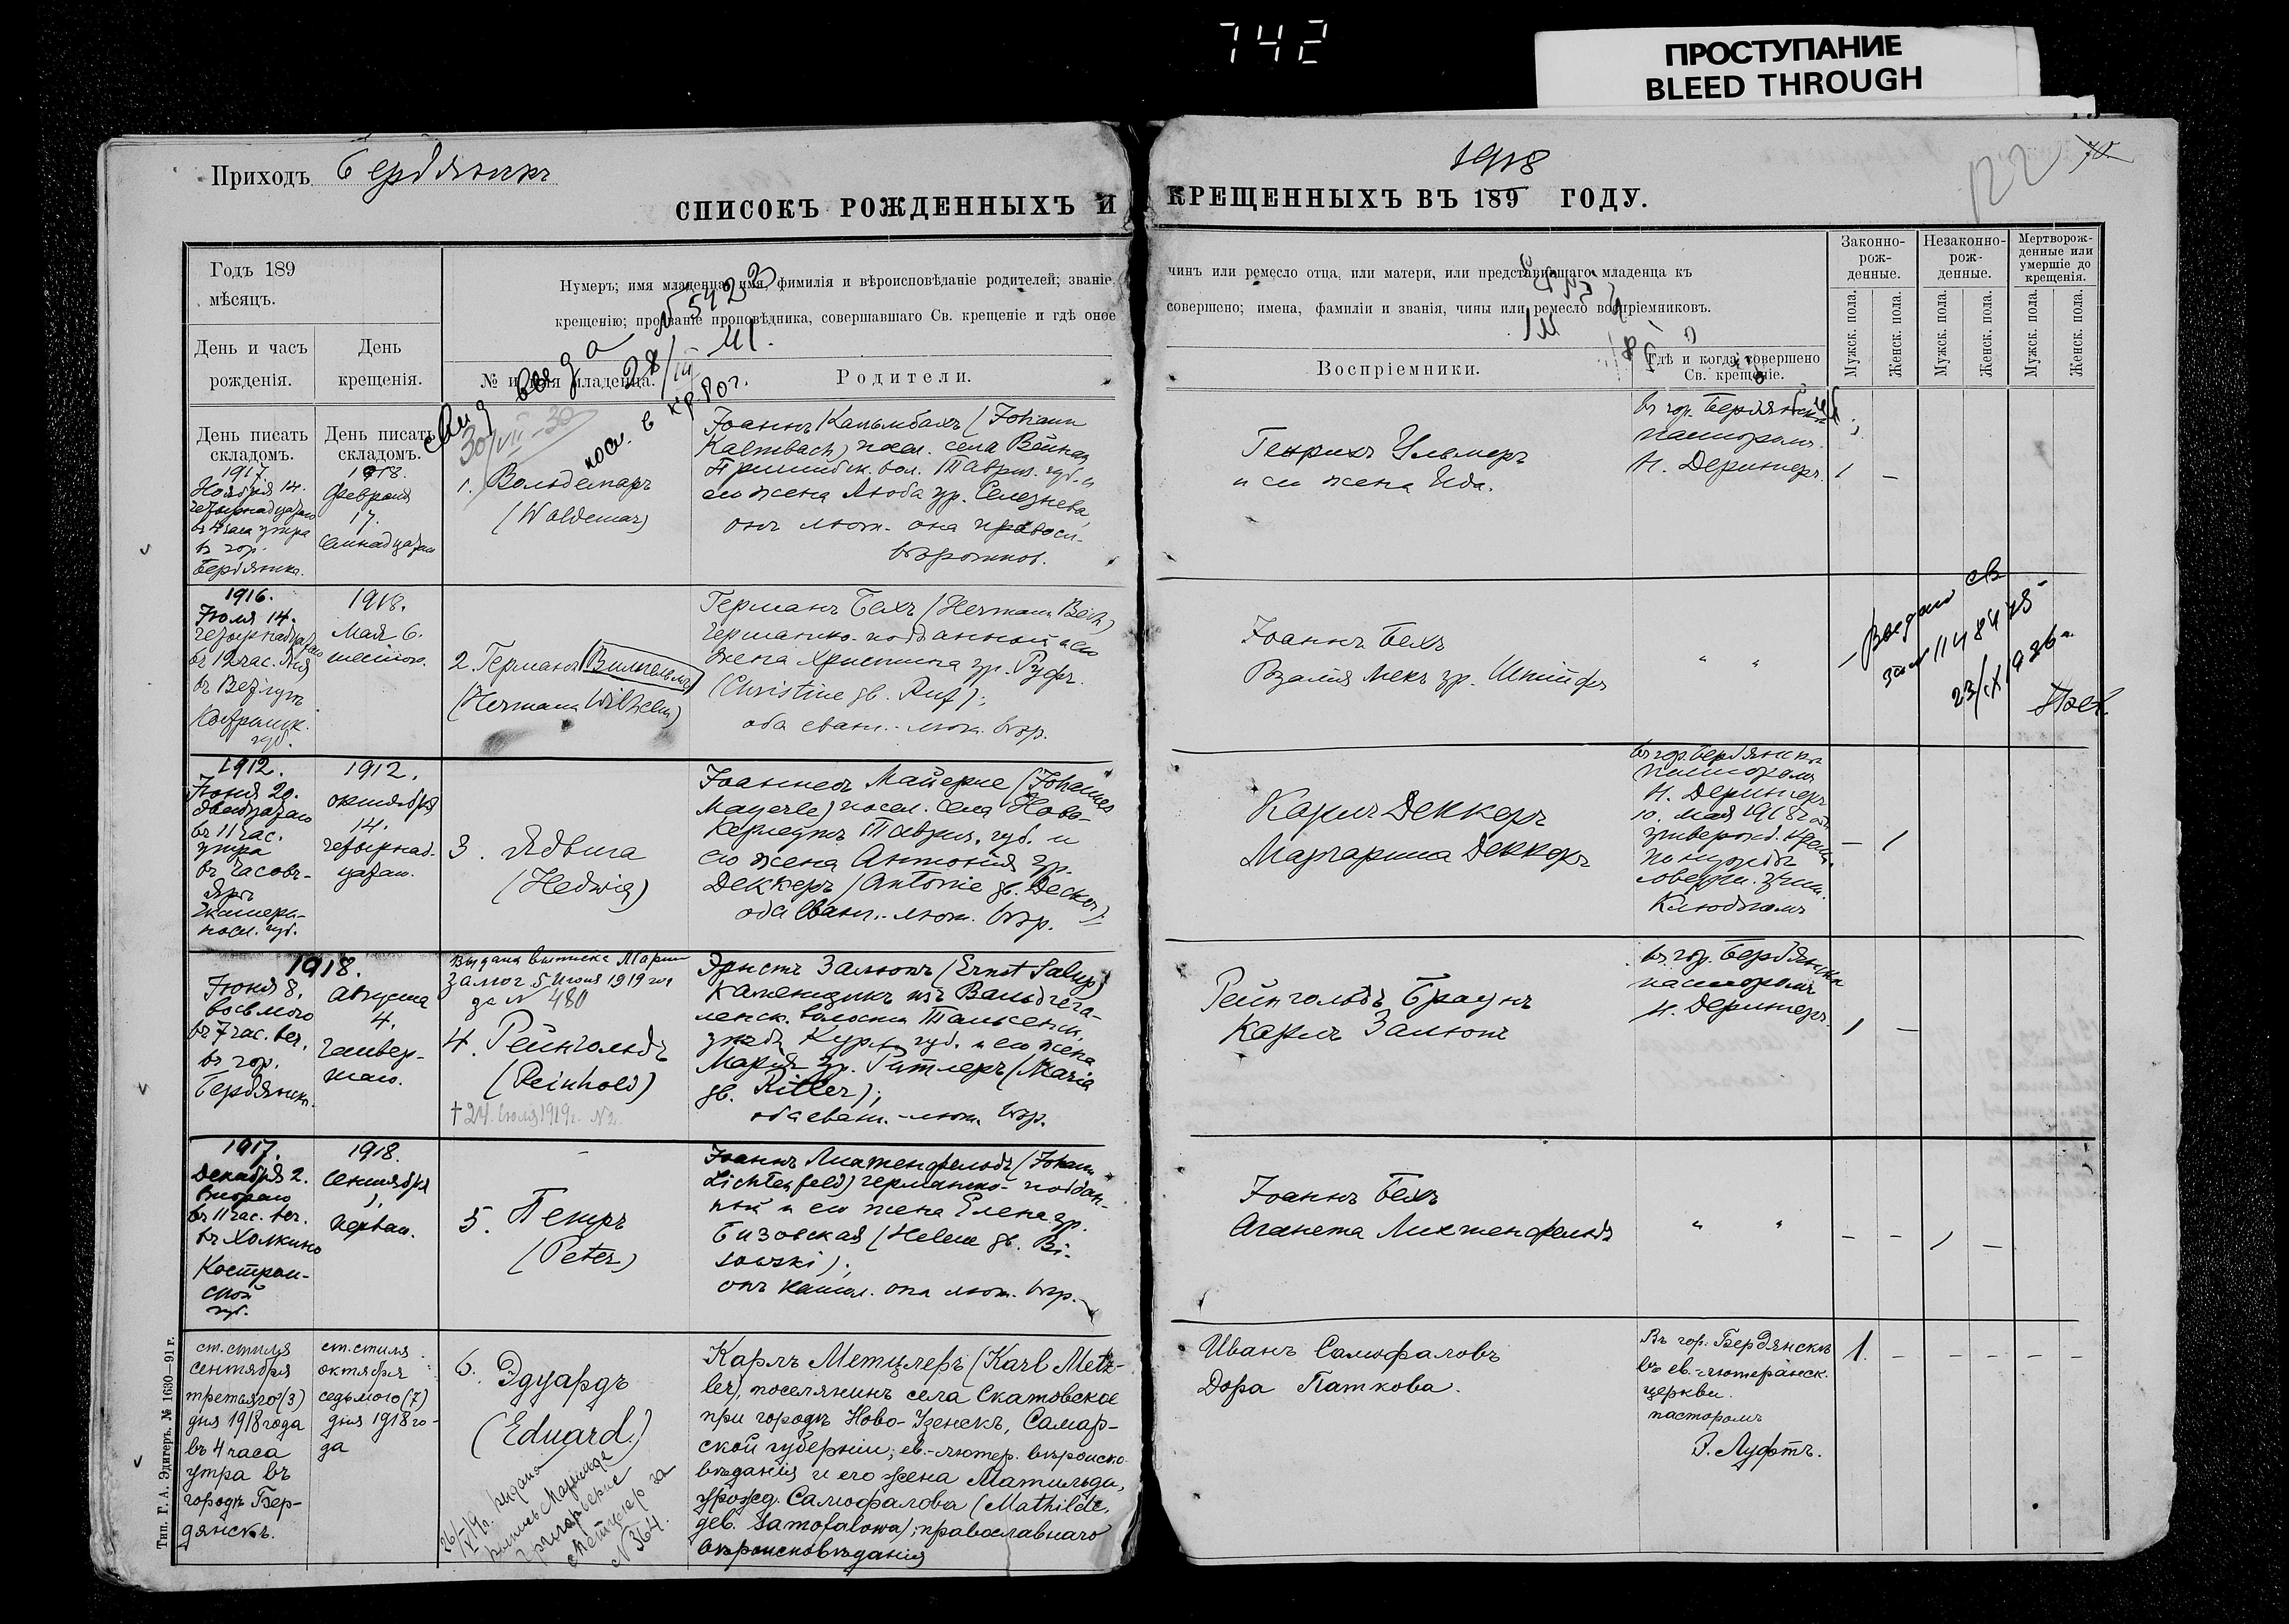 742
ПРОСТУПАНИЕ
BLEED THROUGH
Приходъ Бердянскъ
1918
122
СПИСОКЪ РОЖДЕННЫХЪ И КРЕЩЕННЫХЪ ВЪ 189 ГОДУ.
Годъ 189
мѣсяцъ.
День и часъ
рожденія.
День
крещенія.
Нумеръ; имя младенца; имя, фимилія и вѣроисповѣданіе родителей; званіе,
чинъ или ремесло отца, или матери, или представившаго младенца къ
крещенію; прозваніе проповѣдника, совершавшаго Св. крещеніе и гдѣ оное
совершено; имена, фамиліи и званія, чины или ремесло воспріемниковъ.
№ и имя младенца.
Родители.
Воспріемники.
Гдѣ и когда совершено
Св. крещеніе.
Законно-
рож-
денные.
Незаконно-
рож-
денные.
Мертворож-
денные или
умершіе до
крещенія.
Мужск. пола.
Женск. пола.
Мужск. пола.
Женск. пола.
Мужск. пола.
Женск. пола.
День писать
складомъ.
День писать
складомъ.
1917.
Ноября 14.
четырнадцатаго
въ 4 часа утра
въ гор.
Бердянскѣ.
1918.
Февраля
17.
семнадцатаго
1. Вольдемаръ
(Waldemar)
Іоаннъ Кальмбахъ (Johann
Kalmbach) посел. села Вейнау
Пришибск. вол. Таврич. губ. и
его жена Люба ур. Селезнева,
онъ лют. она правосл.
вѣроисповѣд.
Генрихъ Ульмеръ
и его жена Ида.
въ гор. Бердянскѣ
пасторомъ
Н. Дерингеръ.
1 –
1916.
Іюля 14.
четырнадцатаго
въ 12 час. дня
въ Ветлугѣ
Костромск.
губ.
1918.
Мая 6.
шестого.
2. Германъ Вильгельмъ
(Hermann Wilhelm)
Германъ Бехъ (Hermann Bech)
германско-подданный и его
жена Христина ур. Руфъ
(Christine gb. Ruf);
оба еванг.-лют. вѣр.
Іоаннъ Бехъ
Розалія Мекъ ур. Шпийфъ
" "
23/IX 1936 г.
1912.
Іюня 20.
двадцатаго
въ 11 час.
утра
въ Часовъ-
Ярѣ
Екатерин-
посл. губ.
1912.
октября
14.
четырнад-
цатаго.
3. Ядвига
(Hedwig)
Іоаннесъ Майерле (Johannes
Mayerle) посел. села Ново-
Таврич. губ. и
его жена Антонія ур.
Деккеръ (Antonie gb. Decker)
оба еванг.-лют. вѣр.
Карлъ Деккеръ
Маргарита Деккеръ
въ гор. Бердянскѣ
пасторомъ
Н. Дерингеръ
10. мая 1918 года
– 1
1918.
Іюня 8.
восьмого
въ 7 час. веч.
въ гор.
Бердянскѣ.
Августа
4.
четвер-
таго.
Выдана выписка Маріи
Залюпъ 5 Іюня 1919 года
за № 480
4. Рейнгольдъ
(Reinhold)
† 24. Іюля 1919 г. № 2.
Эрнстъ Залюпъ (Ernst Salup)
каменщикъ изъ Вальдгега-
ленск. волости Тальсенск.
уѣзда Курл. губ. и его жена
Марія ур. Ритлеръ (Maria
gb. Ritler);
оба еванг.-лют. вѣр.
Рейнгольдъ Браунъ
Карлъ Залюпъ
въ гор. Бердянскѣ
пасторомъ
Н. Дерингеръ.
1 –
1917.
Декабря 2.
Второго
въ 11 час. веч.
въ Холкино
Костром-
ской
губ.
1918.
Сентября
1.
перваго.
5. Петръ
(Peter)
Іоаннъ Лихтенфельдъ (Johann
Lichtenfeld) германско-поддан-
ный и его жена Елена ур.
Бизовская (Helene gb. Bi-
sowski);
онъ катол. она лют. вѣр.
Іоаннъ Бехъ
Аганета Лихтенфельдъ
" "
– – 1 –
ст. стиля
сентября
третьяго (3)
дня 1918 года
въ 4 часа
утра въ
городѣ Бер-
дянскѣ.
ст. стиля
октября
седьмого (7)
дня 1918 го-
да
6. Эдуардъ
(Eduard.)
№ 364.
Карлъ Метцлеръ (Karl Metz-
ler), поселянинъ села Скатовское
при городѣ Ново-Узенскѣ, Самар-
ской губерніи; ев.-лютер. вѣроиспо-
вѣданія и его жена Матильда,
урожд. Самофалова (Mathilde,
geb. Samofalowa); православнаго
вѣроисповѣданія
Иванъ Самофаловъ
Дора Паткова.
Въ гор. Бердянскѣ
въ ев.-лютеранск.
церкви
пасторомъ
Э. Луфтъ.
1. – – – – –
Тип. Г. А. Эдигеръ. № 1630—91 г.